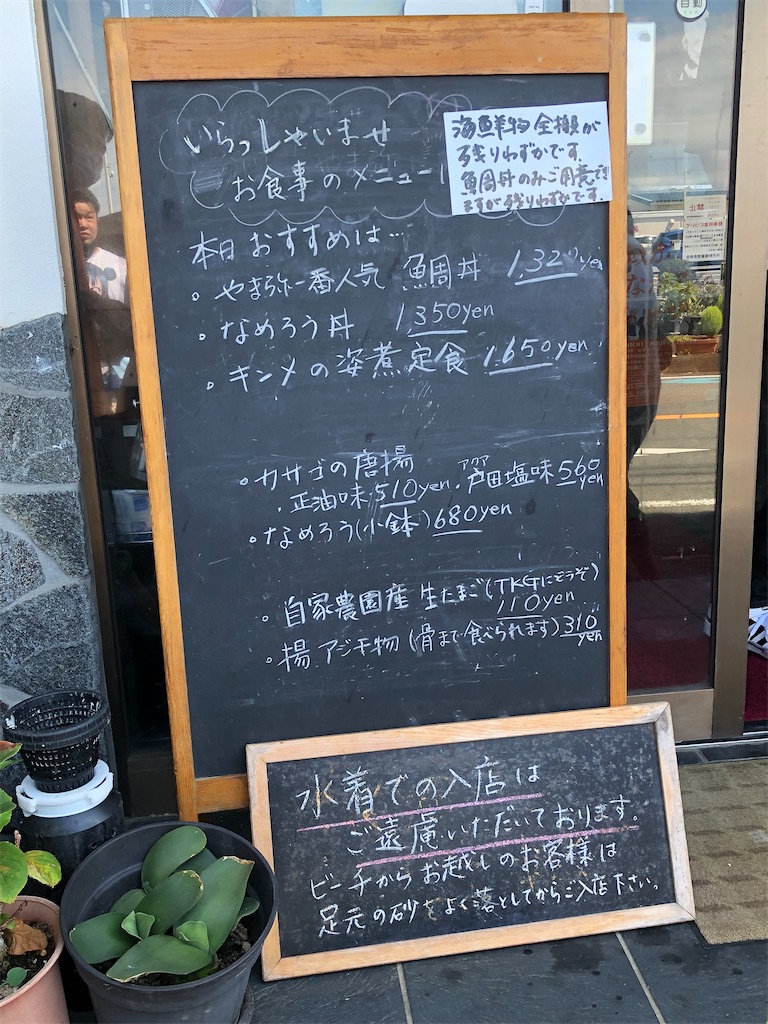 いらっしゃいませ
お食事のメニュー!
海鮮物全搬が
残りわずかです。
魚周丼のみご用意でき
ますが残りわずかです。
本日おすすめは…
・やまや一番人気 魚周丼 1,320yen
・なめろう丼 1,350yen
・キンメの姿煮定食 1,650yen
・カサゴの唐揚
・正油味 510yen ・戸田塩味 560yen
・なめろう(小鉢) 680yen
・自家農園産 生たまご(TKGにどうぞ)
110yen
・揚アジ干物(骨まで食べられます) 310yen
水着での入店は
ご遠慮いただいております。
ビーチからお越しのお客様は
足元の砂をよく落としてからご入店下さい。
自動